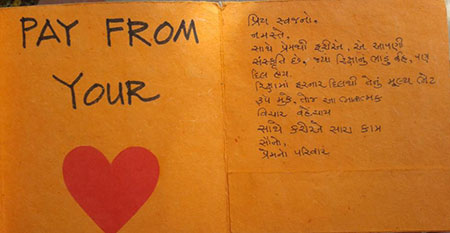 PAY FROM
YOUR
પ્રિય સ્વજનો,
નમસ્તે,
સાથે પ્રેમથી ફરીએ, એ આપણી
સંસ્કૃતિ છે, જ્યાં રિક્ષાનું ભાડું નહિ, પણ
દિલ હોય.
રિક્ષામાં ફરનાર દિલથી તેનું મૂલ્ય ભેટ
રૂપે મુકે, તોજ આ
વિચાર વહેંચાય
સાથે કરીએ સારા કામ
સૌનો,
પ્રેમનો પરિવાર